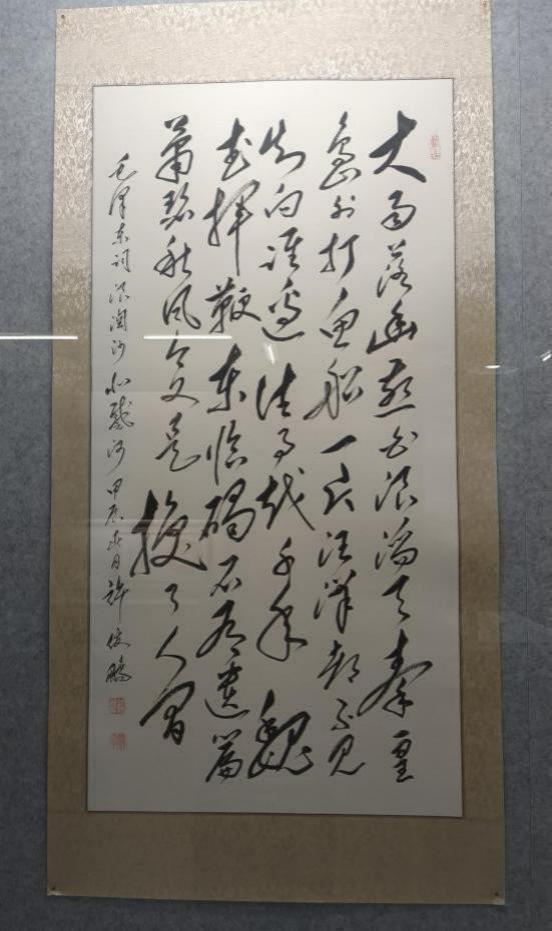 大雨落幽燕白浪滔天秦皇
岛外打鱼船一片汪洋都不见
知向谁边往事越千年魏
武挥鞭东临碣石有遗篇
萧瑟秋风今又是换了人间
毛泽东词浪淘沙北戴河甲辰春日许俊鹏